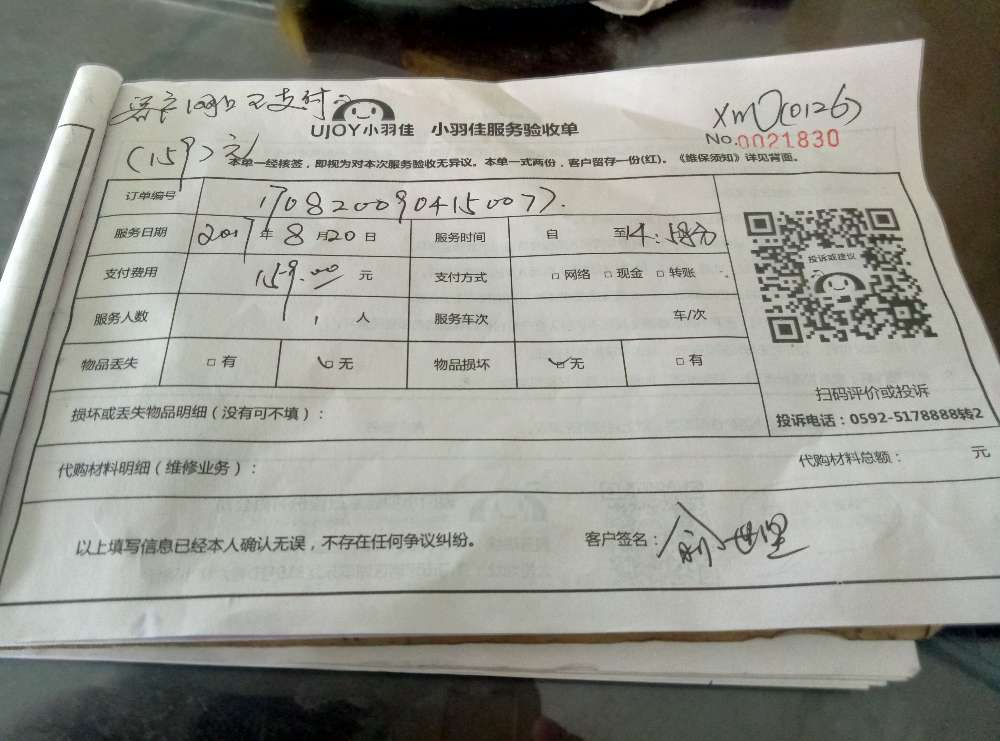 XM(0126)
UJOY小羽佳 小羽佳服务验收单
No.0021830
(159)元
本单一经核签,即视为对本次服务验收无异议。本单一式两份,客户留存一份(红)。《维保须知》详见背面。
订单编号 1708200904150077
服务日期 2017年8月20日 服务时间 自 至14:58分
支付费用 159.00元 支付方式 □网络 □现金 □转账
服务人数 1人 服务车次 车/次
物品丢失 □有 ☑无 物品损坏 ☑无 □有
投诉或建议
扫码评价或投诉
投诉电话:0592-5178888转2
损坏或丢失物品明细(没有可不填):
代购材料明细(维修业务): 代购材料总额: 元
以上填写信息已经本人确认无误,不存在任何争议纠纷。 客户签名: